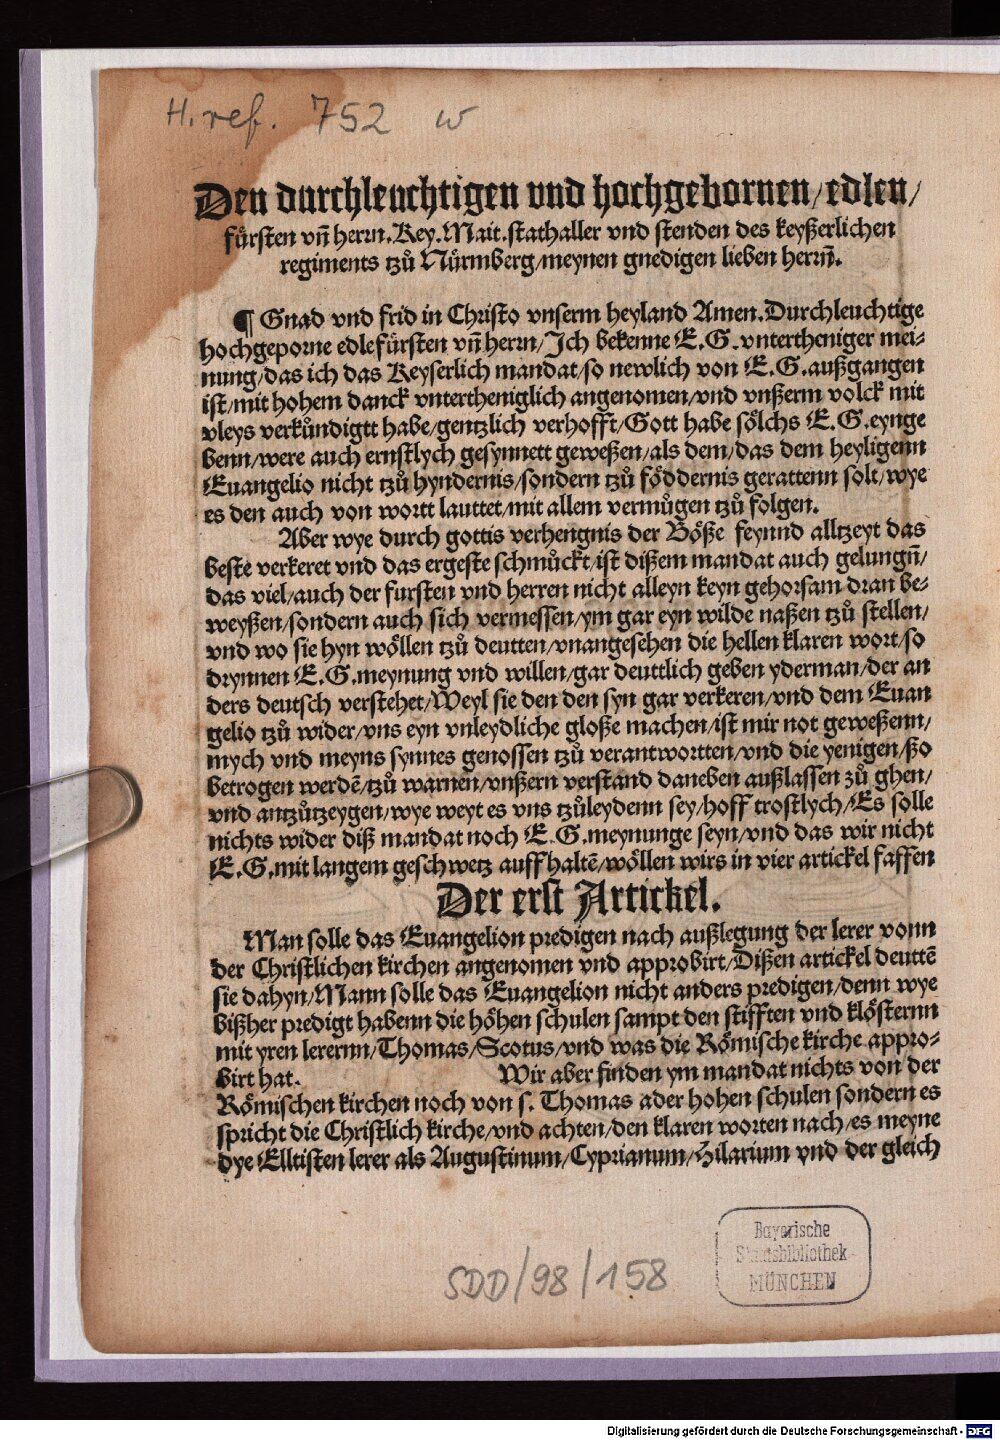 H. ref. 752 w
Den durchleuchtigen vnd hochgebornen/edlen/
fürsten vn̄ herrn. Key. Mait. stathaller vnd stenden des keyßerlichen
regiments tzů Nůrmberg/meynen gnedigen lieben herrn̄.
¶ Gnad vnd frid in Christo vnserm heyland Amen. Durchleuchtige
hochgeporne edle fürsten vn̄ herrn/Ich bekenne E. G. vntertheniger mei-
nung/das ich das Keyserlich mandat/so newlich von E. G. außgangen
ist/mit hohem danck vntertheniglich angenomen/vnd vnßerm volck mit
vleys verkůndigtt habe/gentzlich verhofft/Gott habe sölchs E. G. eynge
benn/were auch ernstlych gesynnett geweßen/als dem/das dem heyligenn
Euangelio nicht tzů hyndernis/sondern tzů föddernis gerattenn solt/wye
es den auch von wortt lauttet/mit allem vermůgen tzů folgen.
Aber wye durch gottis verhengnis der Böße feynnd alltzeyt das
beste verkeret vnd das ergeste schmůckt/ist dißem mandat auch gelungn̄/
das viel/auch der fursten vnd herren nicht alleyn keyn gehorsam dran be-
weyßen/sondern auch sich vermessen/ym gar eyn wilde naßen tzů stellen/
vnd wo sie hyn wöllen tzů deutten/vnangesehen die hellen klaren wort/so
drynnen E. G. meynung vnd willen/gar deuttlich geben yderman/der an
ders deutsch verstehet/Weyl sie den den syn gar verkeren/vnd dem Euan
gelio tzů wider/vns eyn vnleydliche gloße machen/ist mir not geweßenn/
mych vnd meyns synnes genossen tzů verantwortten/vnd die yenigen/ßo
betrogen werdē/tzů warnen/vnßern verstand daneben außlassen zů ghen/
vnd antzůtzeygen/wye weyt es vns tzůleydenn sey/hoff trostlych/Es solle
nichts wider diß mandat noch E. G. meynunge seyn/vnd das wir nicht
E. G. mit langem geschwetz auffhaltē/wöllen wirs in vier artickel fassen
Der erst Artickel.
Man solle das Euangelion predigen nach außlegung der lerer vonn
der Christlichen kirchen angenomen vnd approbirt/Dißen artickel deuttē
sie dahyn/Mann solle das Euangelion nicht anders predigen/denn wye
bißher predigt habenn die höhen schulen sampt den stifften vnd klösternn
mit yren lerernn/Thomas/Scotus/vnd was die Römische kirche appro-
birt hat. Wir aber finden ym mandat nichts von der
Römischen kirchen noch von s. Thomas ader hohen schulen sondern es
spricht die Christlich kirche/vnd achten/den klaren worten nach/es meyne
dye Elltisten lerer als Augustinum/Cyprianum/Hilarium vnd der gleich
SDD/98/158
Bayerische
Staatsbibliothek
MÜNCHEN
Digitalisierung gefördert durch die Deutsche Forschungsgemeinschaft - DFG